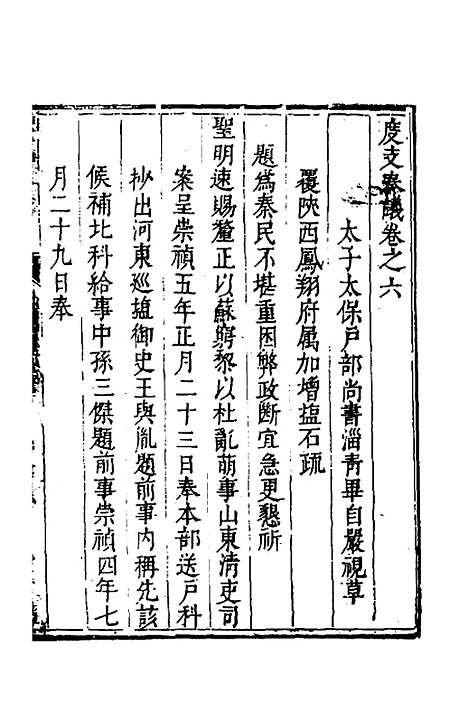 度支奏議卷之六
太子太保戶部尚書淄青畢自嚴視草
覆陝西鳳翔府属加增塩石疏
題爲秦民不堪重困弊政斷宜急更懇祈
聖明速賜釐正以蘇窮黎以杜亂萌事山東清吏司
案呈崇禎五年正月二十三日奉本部送戶科
抄出河東巡塩御史王與胤題前事内稱先該
候補北科給事中孫三傑題前事崇禎四年七
月二十九日奉